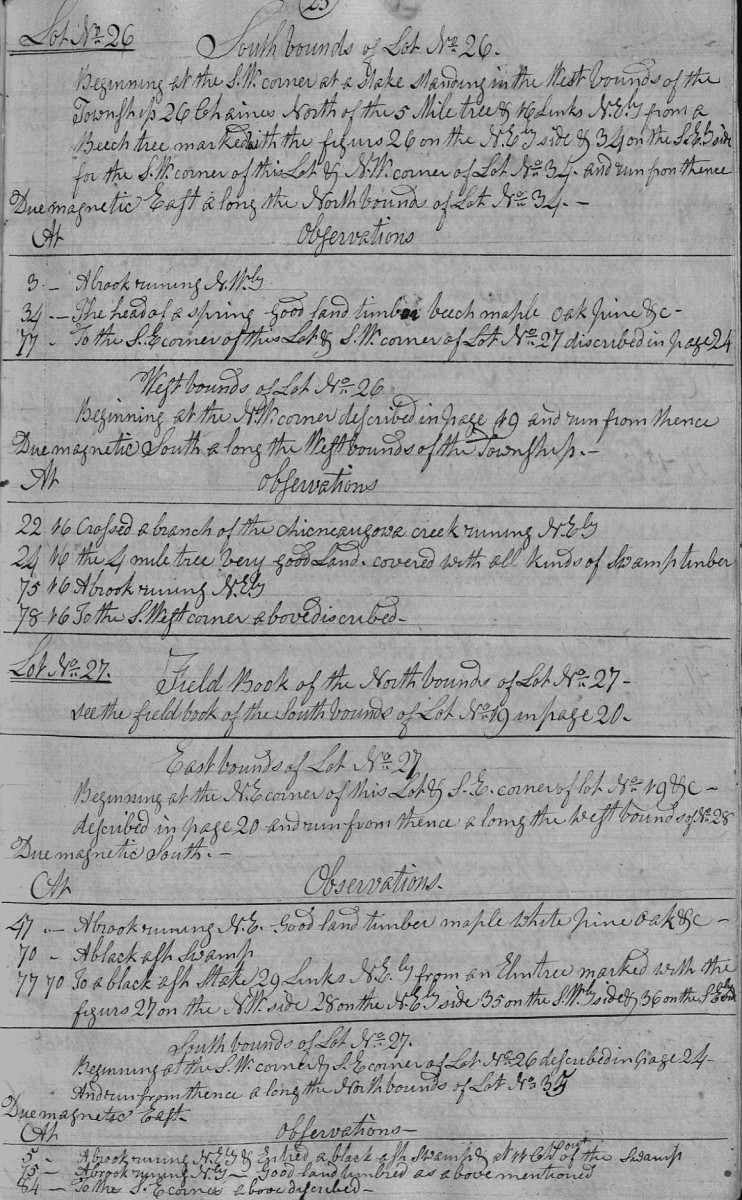 23
Lot No. 26
South bounds of Lot No. 26.
Beginning at the S.W. corner at a Stake standing in the West bounds of the
Township 26 Chaines North of the 5 Mile tree & 16 Links N.Ely from a
Beech tree marked with the figurs 26 on the N.Ely side & 34 on the S.Ely side
for the S.W. corner of this Lot & N.W. corner of Lot No. 34. and run from thence
Due magnetic East a long the North bounds of Lot No. 34. –
At Observations
3 .– A brook runing N.Wly
34 .– The head of a spring good land timber beech maple oak pine &c –
77 . To the S.E corner of this Lot & S.W. corner of Lot No. 27 discribed in page 24
West bounds of Lot No. 26
Beginning at the N.W. corner described in page 19 and run from thence
Due magnetic South a long the West bounds of the Township. –
At Observations
22 16 Crossed a branch of the chicneaugowa creek runing N.Ely
24 16 the 4 mile tree very good Land. covered with all kinds of Swamp timber
75 16 A brook runing N.Ely
78 16 To the S. West corner above discribed –
Lot No. 27.
Field Book of the North bounds of Lot No. 27 –
see the field book of the South bounds of Lot No. 19 in page 20.
East bounds of Lot No. 27
Beginning at the N.E corner of this Lot & S.E. corner of lot No. 19 &c –
described in page 20 and run from thence a long the west bounds of No. 28
Due magnetic South. –
At Observations.
47 .– A brook runing N.E. Good land timber maple white pine oak &c –
70 – A black ash Swamp
77 70 To a black ash Stake 29 Links N.Ely from an Elm tree marked with the
figurs 27 on the N.W. side 28 on the N.Ely side 35 on the S.Wly side & 36 on the S.Ely side
South bounds of Lot No. 27.
Beginning at the S.W. corner & S.E corner of Lot No. 26 described in page 24 –
And run from thence a long the North bounds of Lot No. 35
Due magnetic East –
At Observations –
5 – A brook runing N.Ely & Entred a black ash Swamp & at 11 Ch of the Swamp
75 – A brook runing N.Ely – Good land timbred as above mentioned
84 – To the S.E corner above discribed –